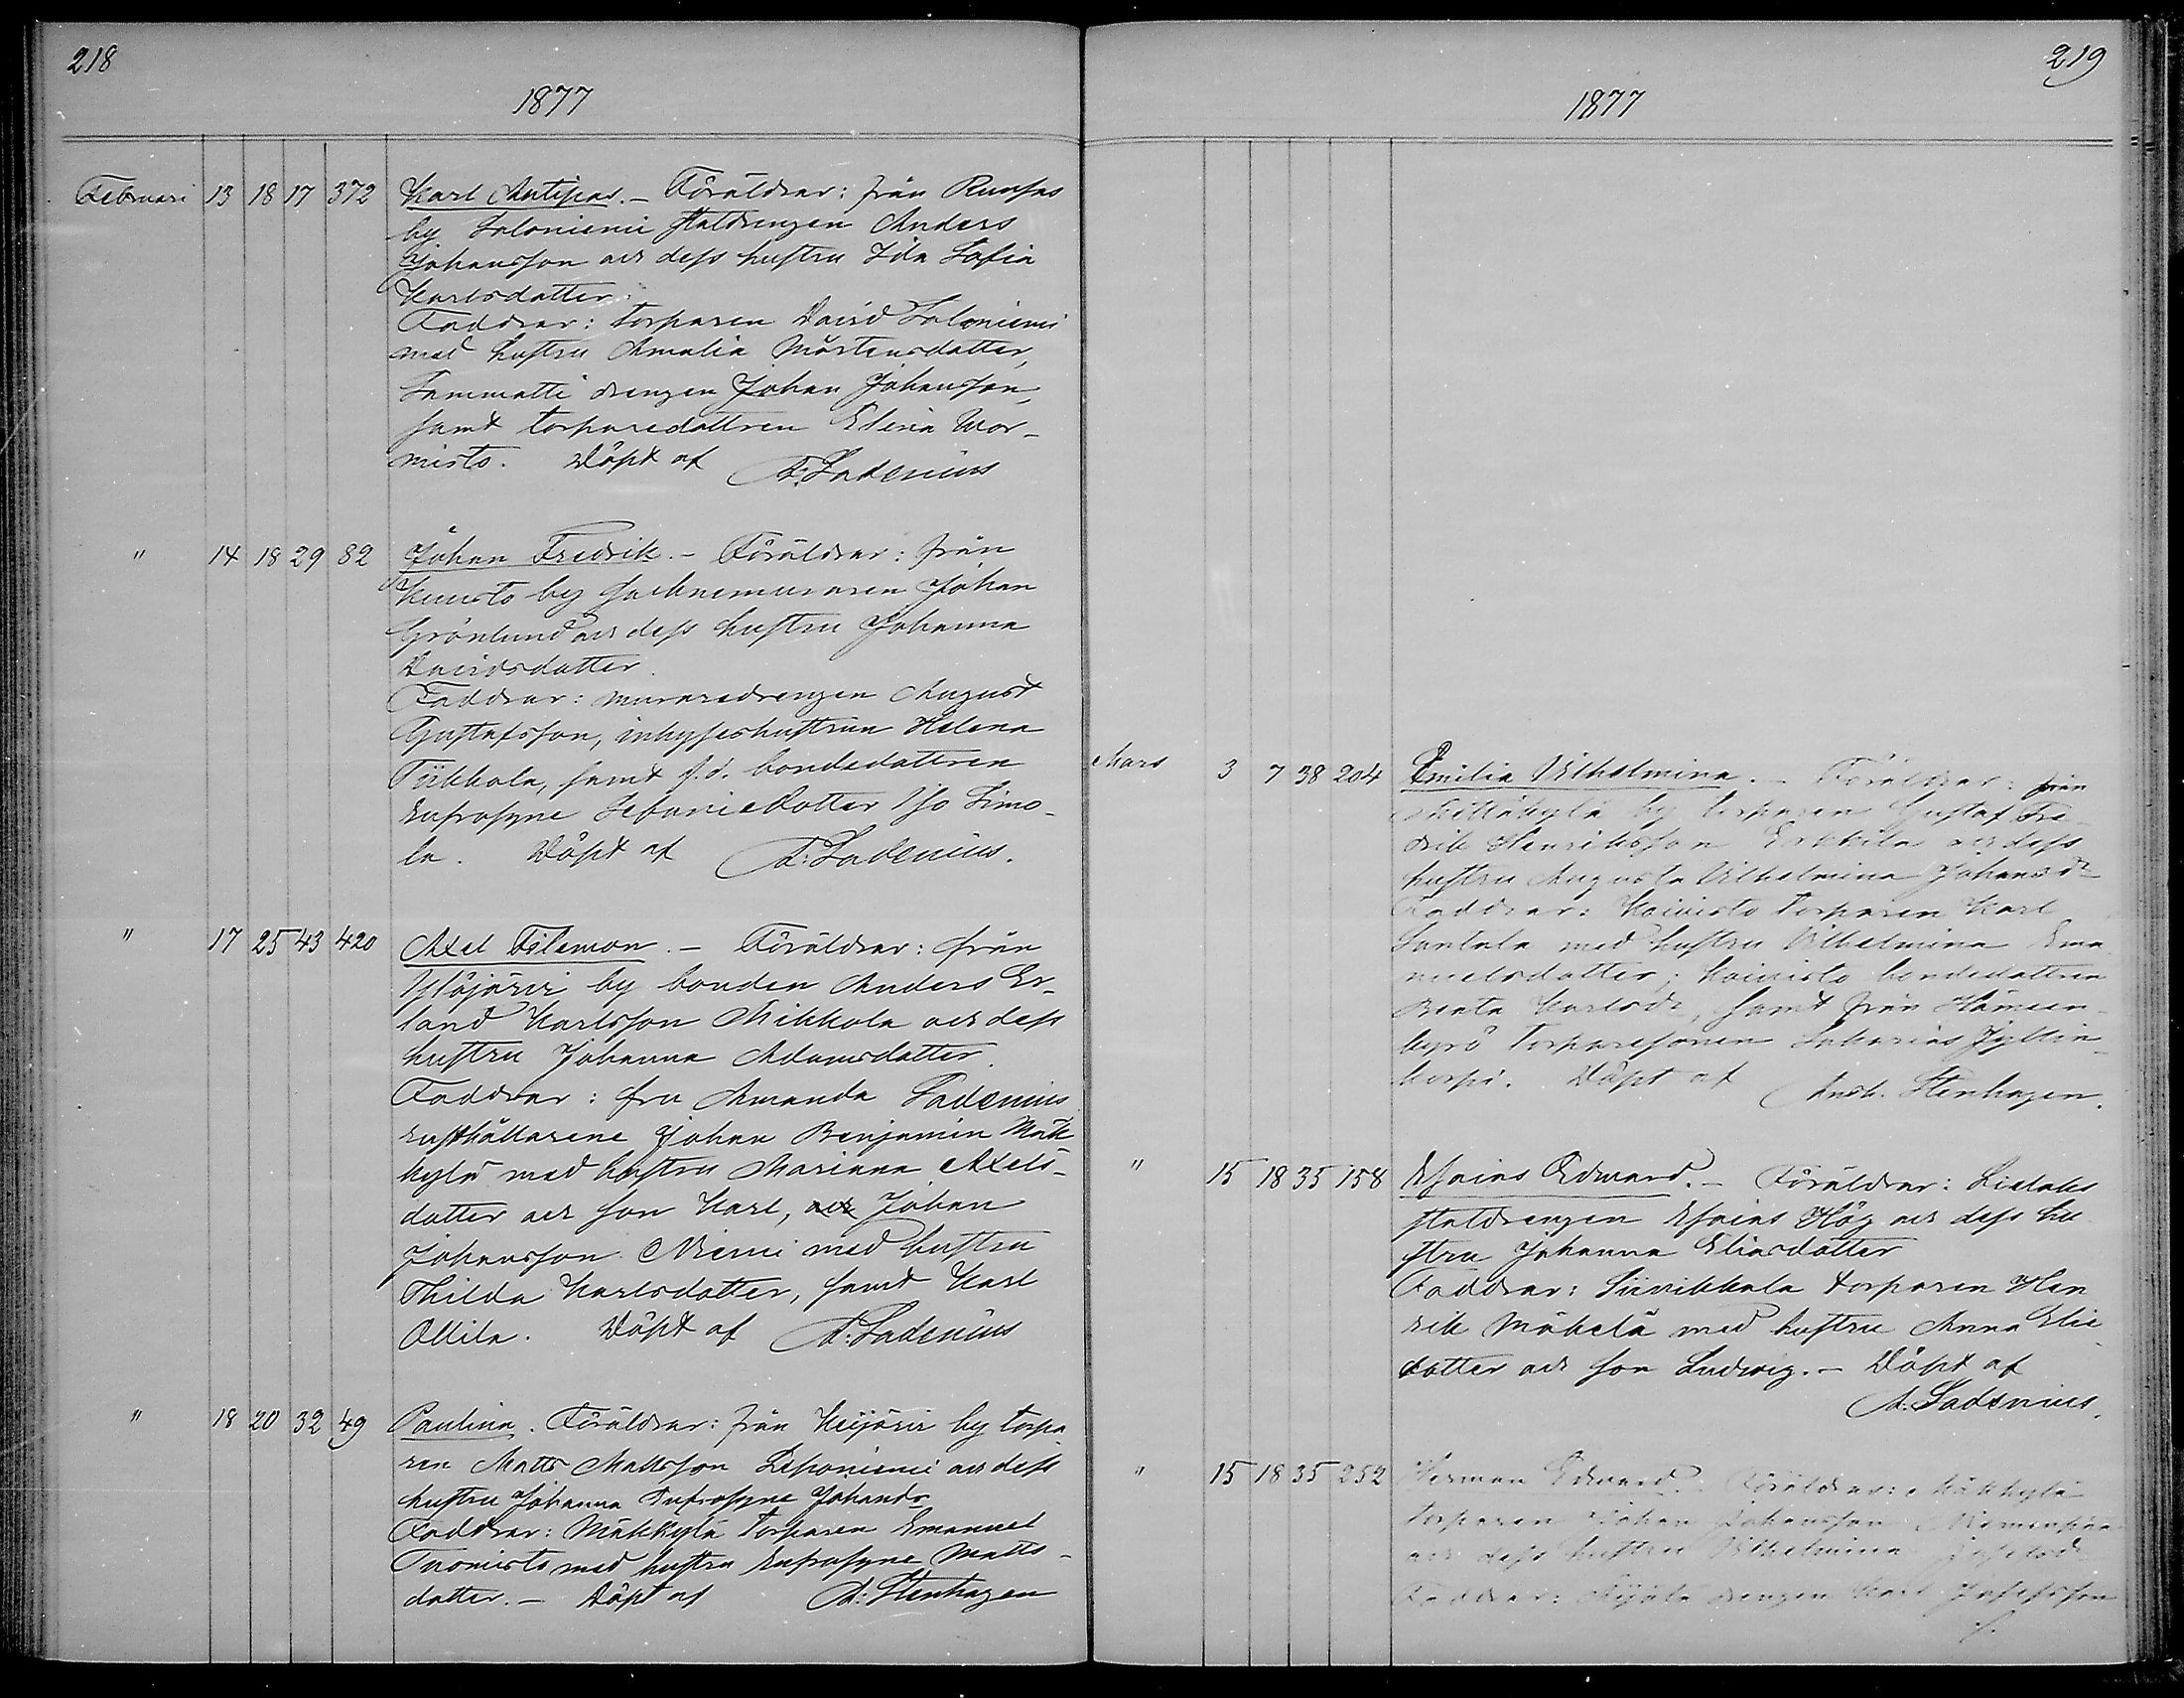 218
1877
Februari 13 18 17 372 Karl Antipas. – Föräldrar: från Runsas
by Saloniemi staldrengen Anders
Johansson och dess hustru Ida Sofia
Karlsdotter.
Faddrar: torparen David Saloniemi
med hustru Amalia Mårtensdotter,
Sammatti drengen Johan Johansson,
samt torparedottren Elina Wor-
misto. Döpt af A: Ladenius
" 14 18 29 82 Johan Fredrik. – Föräldrar: från
Kuusto by Johan
Grönlund och dess hustru Johanna
Davidsdotter.
Faddrar: muraredrengen August
Gustafsson, inhyseshustrun Helena
Tiikkala, samt f.d. bondedottren
Eufrosyne dotter Iso Simo-
la. Döpt af A: Ladenius.
" 17 25 43 420 Axel Filemon. – Föräldrar: från
Ylöjärvi by bonden Anders Er-
land Karlsson Mikkola och dess
hustru Johanna Adamsdotter.
Faddrar: fru Amanda Ladenius
rusthållarene Johan Benjamin Mäk
kylä med hustru Marianna Axels-
dotter och son Karl, och Johan
Johansson Niemi med hustru
Thilda Karlsdotter, samt Karl
Ollila. Döpt af A: Ladenius
" 18 20 32 49 Paulina. Föräldrar: från Keijärvi by torpa
ren Matts Mattsson Leponiemi och dess
hustru Johanna Eufrosyne Johansdr
Faddrar: Mäkkylä torparen Emanuel
Tuomisto med hustru Eufrosyne Matts-
dotter. – Döpt af A: Stenhagen
219
1877
Mars 3 7 38 204 Emilia Vilhelmina. – Föräldrar: från
by torparen Gustaf Fre-
drik Henriksson Erkkila och dess
hustru Augusta Vilhelmina Johansdr
Faddrar: Koivisto torparen Karl
Santala med hustru Vilhelmina Ema
nuelsdotter; Koivisto bondedottren
Beata Karlsdr, samt från Hämeen-
kyrö torparesonen Sakarias Jyllin-
korpi. Döpt af Andr. Stenhagen.
" 15 18 35 158 Esaias Edvard. – Föräldrar: Lielaks
staldrengen Esaias Hög och dess hu
stru Johanna Eliasdotter
Faddrar: Siivikkala torparen Hen
rik Mäkelä med hustru Anna Elie
dotter och son Ludvig. – Döpt af
A: Ladenius.
" 15 18 35 252 Herman Edvard. – Föräldrar: Mäkkylä
torparen Johan Johansson Niemenpää
och dess hustru Vilhelmina Josefsdr
Faddrar: drengen Karl Josefsson